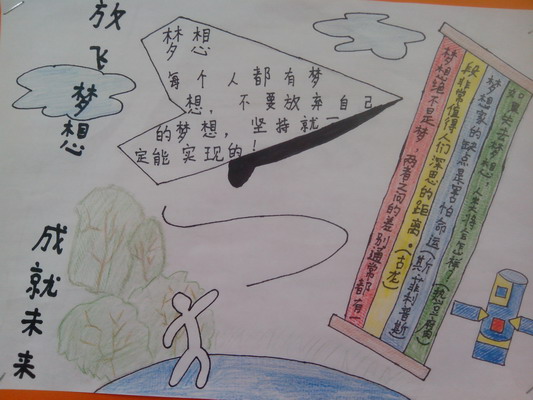 放飞梦想
成就未来
梦想
每个人都有梦
想，不要放弃自己
的梦想，坚持就一
定能实现的！
梦想绝不是梦，两者之间的差别通常都有一
段非常值得人们深思的距离。（古龙）
梦想家的缺点是害怕命运（斯·菲利普斯）
如果失去梦想，人类将会怎样？（热豆腐）